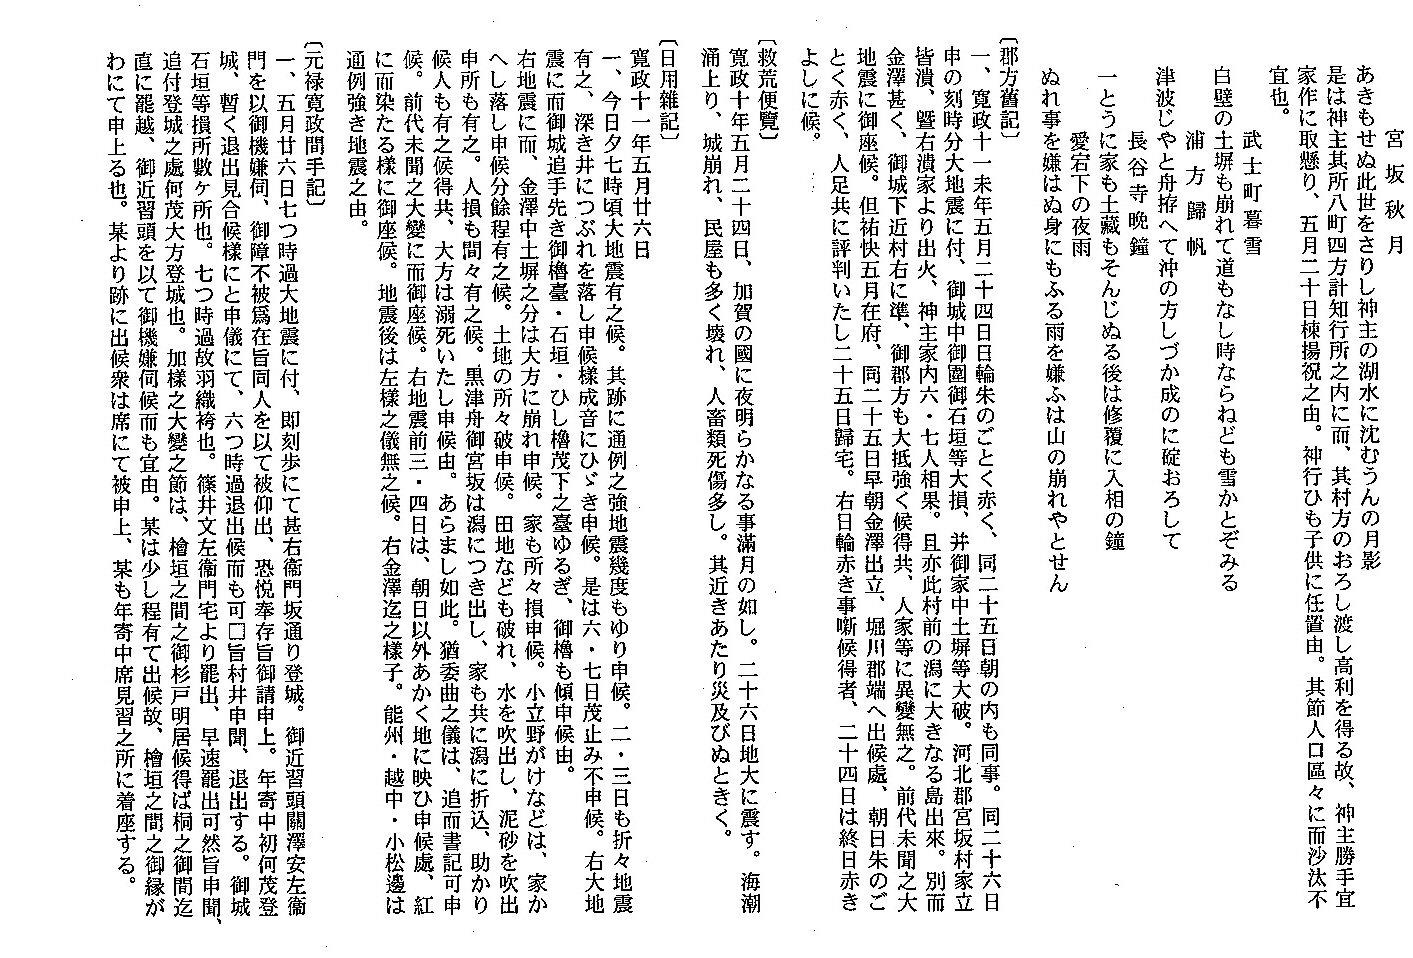 宮坂秋月
あきもせぬ此世をさりし神主の湖水に沈むうんの月影
是は神主其所八町四方計知行所之内に而、其村方のおろし渡し高利を得る故、神主勝手宜
家作に取懸り、五月二十日棟揚祝之由。神行ひも子供に任置由。其節人口區々に而沙汰不
宜也。
武士町暮雪
白壁の土塀も崩れて道もなし時ならねども雪かとぞみる
浦方歸帆
津波じやと舟拵へて沖の方しづか成のに碇おろして
長谷寺晩鐘
一とうに家も土藏もそんじぬる後は修覆に入相の鐘
愛宕下の夜雨
ぬれ事を嫌はぬ身にもふる雨を嫌ふは山の崩れやとせん
〔郡方舊記〕
一、寛政十一未年五月二十四日日輪朱のごとく赤く、同二十五日朝の内も同事。同二十六日
申の刻時分大地震に付、御城中御圍御石垣等大損、并御家中土塀等大破。河北郡宮坂村家立
皆潰、曁右潰家より出火、神主家内六・七人相果。且亦此村前の潟に大きなる島出來。別而
金澤甚く、御城下近村右に準、御郡方も大抵強く候得共、人家等に異變無之。前代未聞之大
地震に御座候。但祐快五月在府、同二十五日早朝金澤出立、堀川郡端へ出候處、朝日朱のご
とく赤く、人足共に評判いたし二十五日歸宅。右日輪赤き事噺候得者、二十四日は終日赤き
よしに候。
〔救荒便覽〕
寛政十年五月二十四日、加賀の國に夜明らかなる事滿月の如し。二十六日地大に震す。海潮
涌上り、城崩れ、民屋も多く壊れ、人畜類死傷多し。其近きあたり災及びぬときく。
〔日用雜記〕
寛政十一年五月廿六日
一、今日夕七時頃大地震有之候。其跡に通例之強地震幾度もゆり申候。二・三日も折々地震
有之、深き井につぶれを落し申候樣成音にひゞき申候。是は六・七日茂止み不申候。右大地
震に而御城追手先き御櫓臺・石垣・ひし櫓茂下之臺ゆるぎ、御櫓も傾申候由。
右地震に而、金澤中土塀之分は大方に崩れ申候。家も所々損申候。小立野がけなどは、家か
へし落し申候分餘程有之候。土地の所々破申候。田地なども破れ、水を吹出し、泥砂を吹出
申所も有之。人損も間々有之候。黒津舟御宮坂は潟につき出し、家も共に潟に折込、助かり
候人も有之候得共、大方は溺死いたし申候由。あらまし如此。猶委曲之儀は、追而書記可申
候。前代未聞之大變に而御座候。右地震前三・四日は、朝日以外あかく地に映ひ申候處、紅
に而染たる樣に御座候。地震後は左樣之儀無之候。右金澤迄之樣子。能州・越中・小松邊は
通例強き地震之由。
〔元禄寛政間手記〕
一、五月廿六日七つ時過大地震に付、即刻歩にて甚右衞門坂通り登城。御近習頭關澤安左衞
門を以御機嫌伺、御障不被爲在旨同人を以て被仰出、恐悦奉存旨御請申上。年寄中初何茂登
城、暫く退出見合候樣にと申儀にて、六つ時過退出候而も可□旨村井申聞、退出する。御城
石垣等損所數ヶ所也。七つ時過故羽織袴也。篠井文左衞門宅より罷出、早速罷出可然旨申聞、
追付登城之處何茂大方登城也。加樣之大變之節は、檜垣之間之御杉戸明居候得ば桐之御間迄
直に罷越、御近習頭を以て御機嫌伺候而も宜由。某は少し程有て出候故、檜垣之間之御縁が
わにて申上る也。某より跡に出候衆は席にて被申上、某も年寄中席見習之所に着座する。